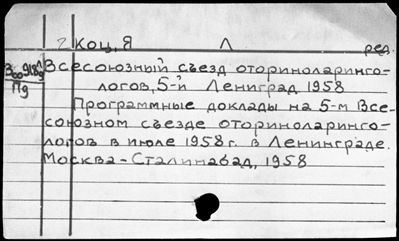 Коц, Я Л ред.
Всесоюзный съезд оториноларинго-
логов, 5-й Ленинград 1958
Пд
Программные доклады на 5-м Все-
союзном съезде оториноларинго-
логов в июле 1958 г. в Ленинграде.
Москва-Сталинабад, 1958